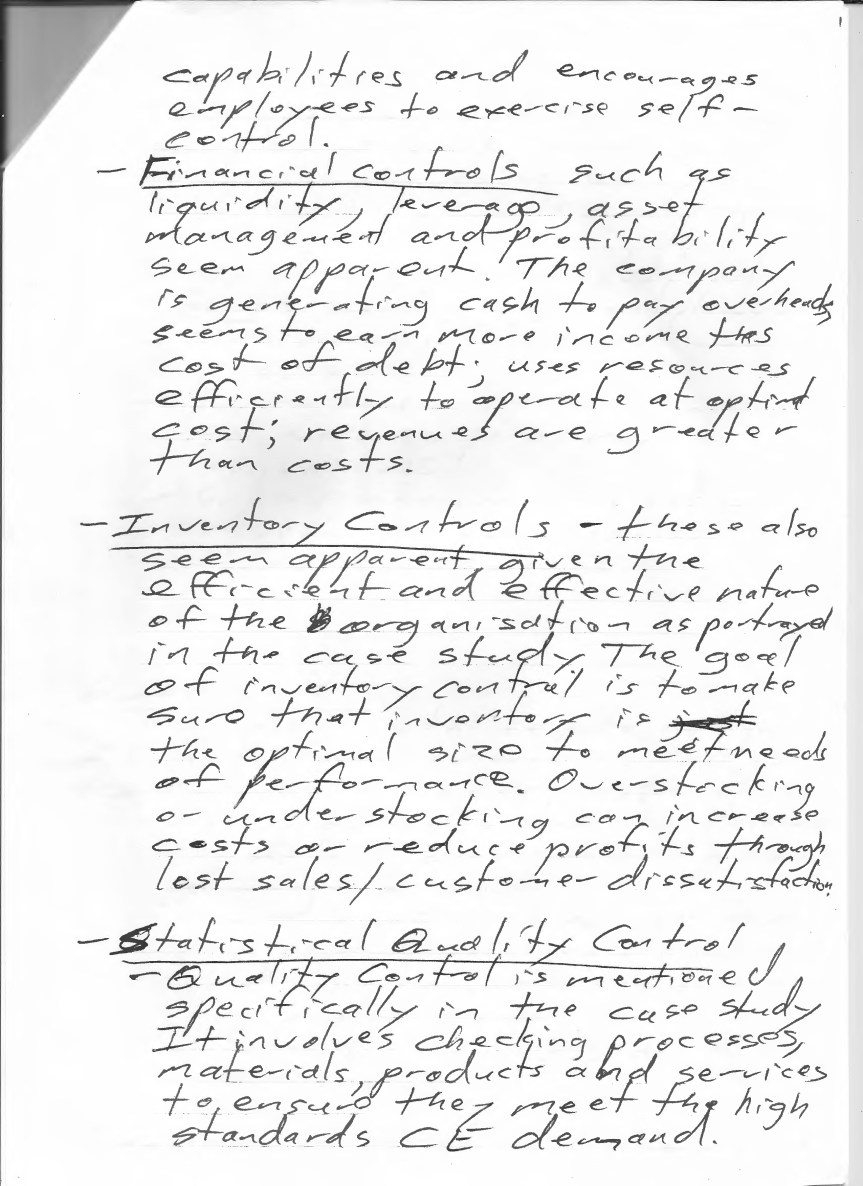 capabilities and encourages
employees to exercise self-
control.
- Financial controls such as
liquidity, leverage, asset
management and profitability
seem apparent. The company
is generating cash to pay overheads,
seems to earn more income
cost of debt; uses resources
efficiently to operate at optimal
cost; revenues are greater
than costs.
- Inventory Controls - these also
seem apparent, given the
efficient and effective nature
of the organisation as portrayed
in the case study. The goal
of inventory control is to make
sure that inventory is
the optimal size to meet needs
of performance. Overstocking
or understocking can increase
costs or reduce profits through
lost sales/customer dissatisfaction.
- Statistical Quality Control
- Quality Control is mentioned
specifically in the case study.
It involves checking processes,
materials, products and services
to ensure they meet the high
standards CE demand.